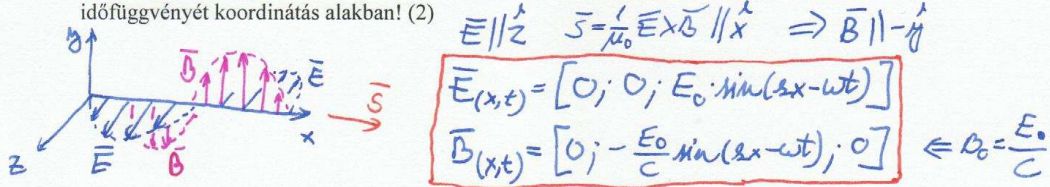 időfüggvényét koordinátás alakban! (2)
E̅ ∥ ẑ   S̅ = 1/μ₀ E̅ × B̅ ∥ x̂   ⇒ B̅ ∥ -ŷ
y B̅ E̅ S̅ x z E̅ B̅
E̅(x,t) = [0; 0; E₀·sin(kx-ωt)]
B̅(x,t) = [0; -E₀/c sin(kx-ωt); 0]   ⇐ B₀ = E₀/c